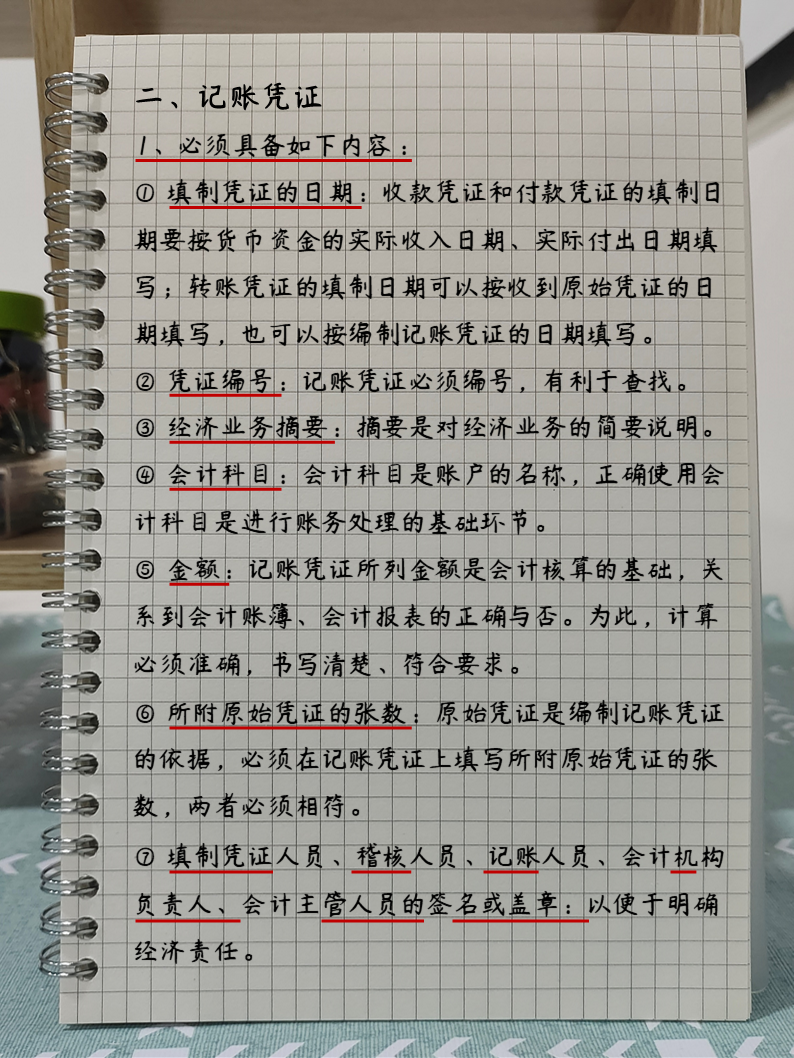 二、记账凭证
1、必须具备如下内容：
① 填制凭证的日期：收款凭证和付款凭证的填制日
期要按货币资金的实际收入日期、实际付出日期填
写；转账凭证的填制日期可以按收到原始凭证的日
期填写，也可以按编制记账凭证的日期填写。
② 凭证编号：记账凭证必须编号，有利于查找。
③ 经济业务摘要：摘要是对经济业务的简要说明。
④ 会计科目：会计科目是账户的名称，正确使用会
计科目是进行账务处理的基础环节。
⑤ 金额：记账凭证所列金额是会计核算的基础，关
系到会计账簿、会计报表的正确与否。为此，计算
必须准确，书写清楚、符合要求。
⑥ 所附原始凭证的张数：原始凭证是编制记账凭证
的依据，必须在记账凭证上填写所附原始凭证的张
数，两者必须相符。
⑦ 填制凭证人员、稽核人员、记账人员、会计机构
负责人、会计主管人员的签名或盖章：以便于明确
经济责任。